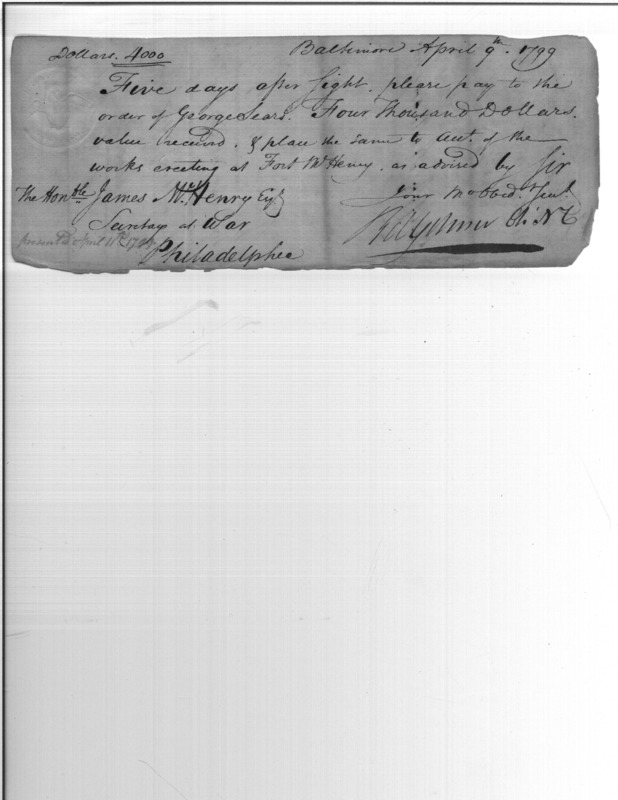 Dollars. 4000 Baltimore April 9th. 1799
Five days after sight, please pay to the
order of George Sears. Four Thousand Dollars.
value received, & place the same to Acct. of the
works erecting at Fort McHenry, as advised by Sir
The Honble James McHenry Esqr Your mo obed. Servt.
Secretary at War Robt Gilmor
presented April 11th 1799
Philadelphia